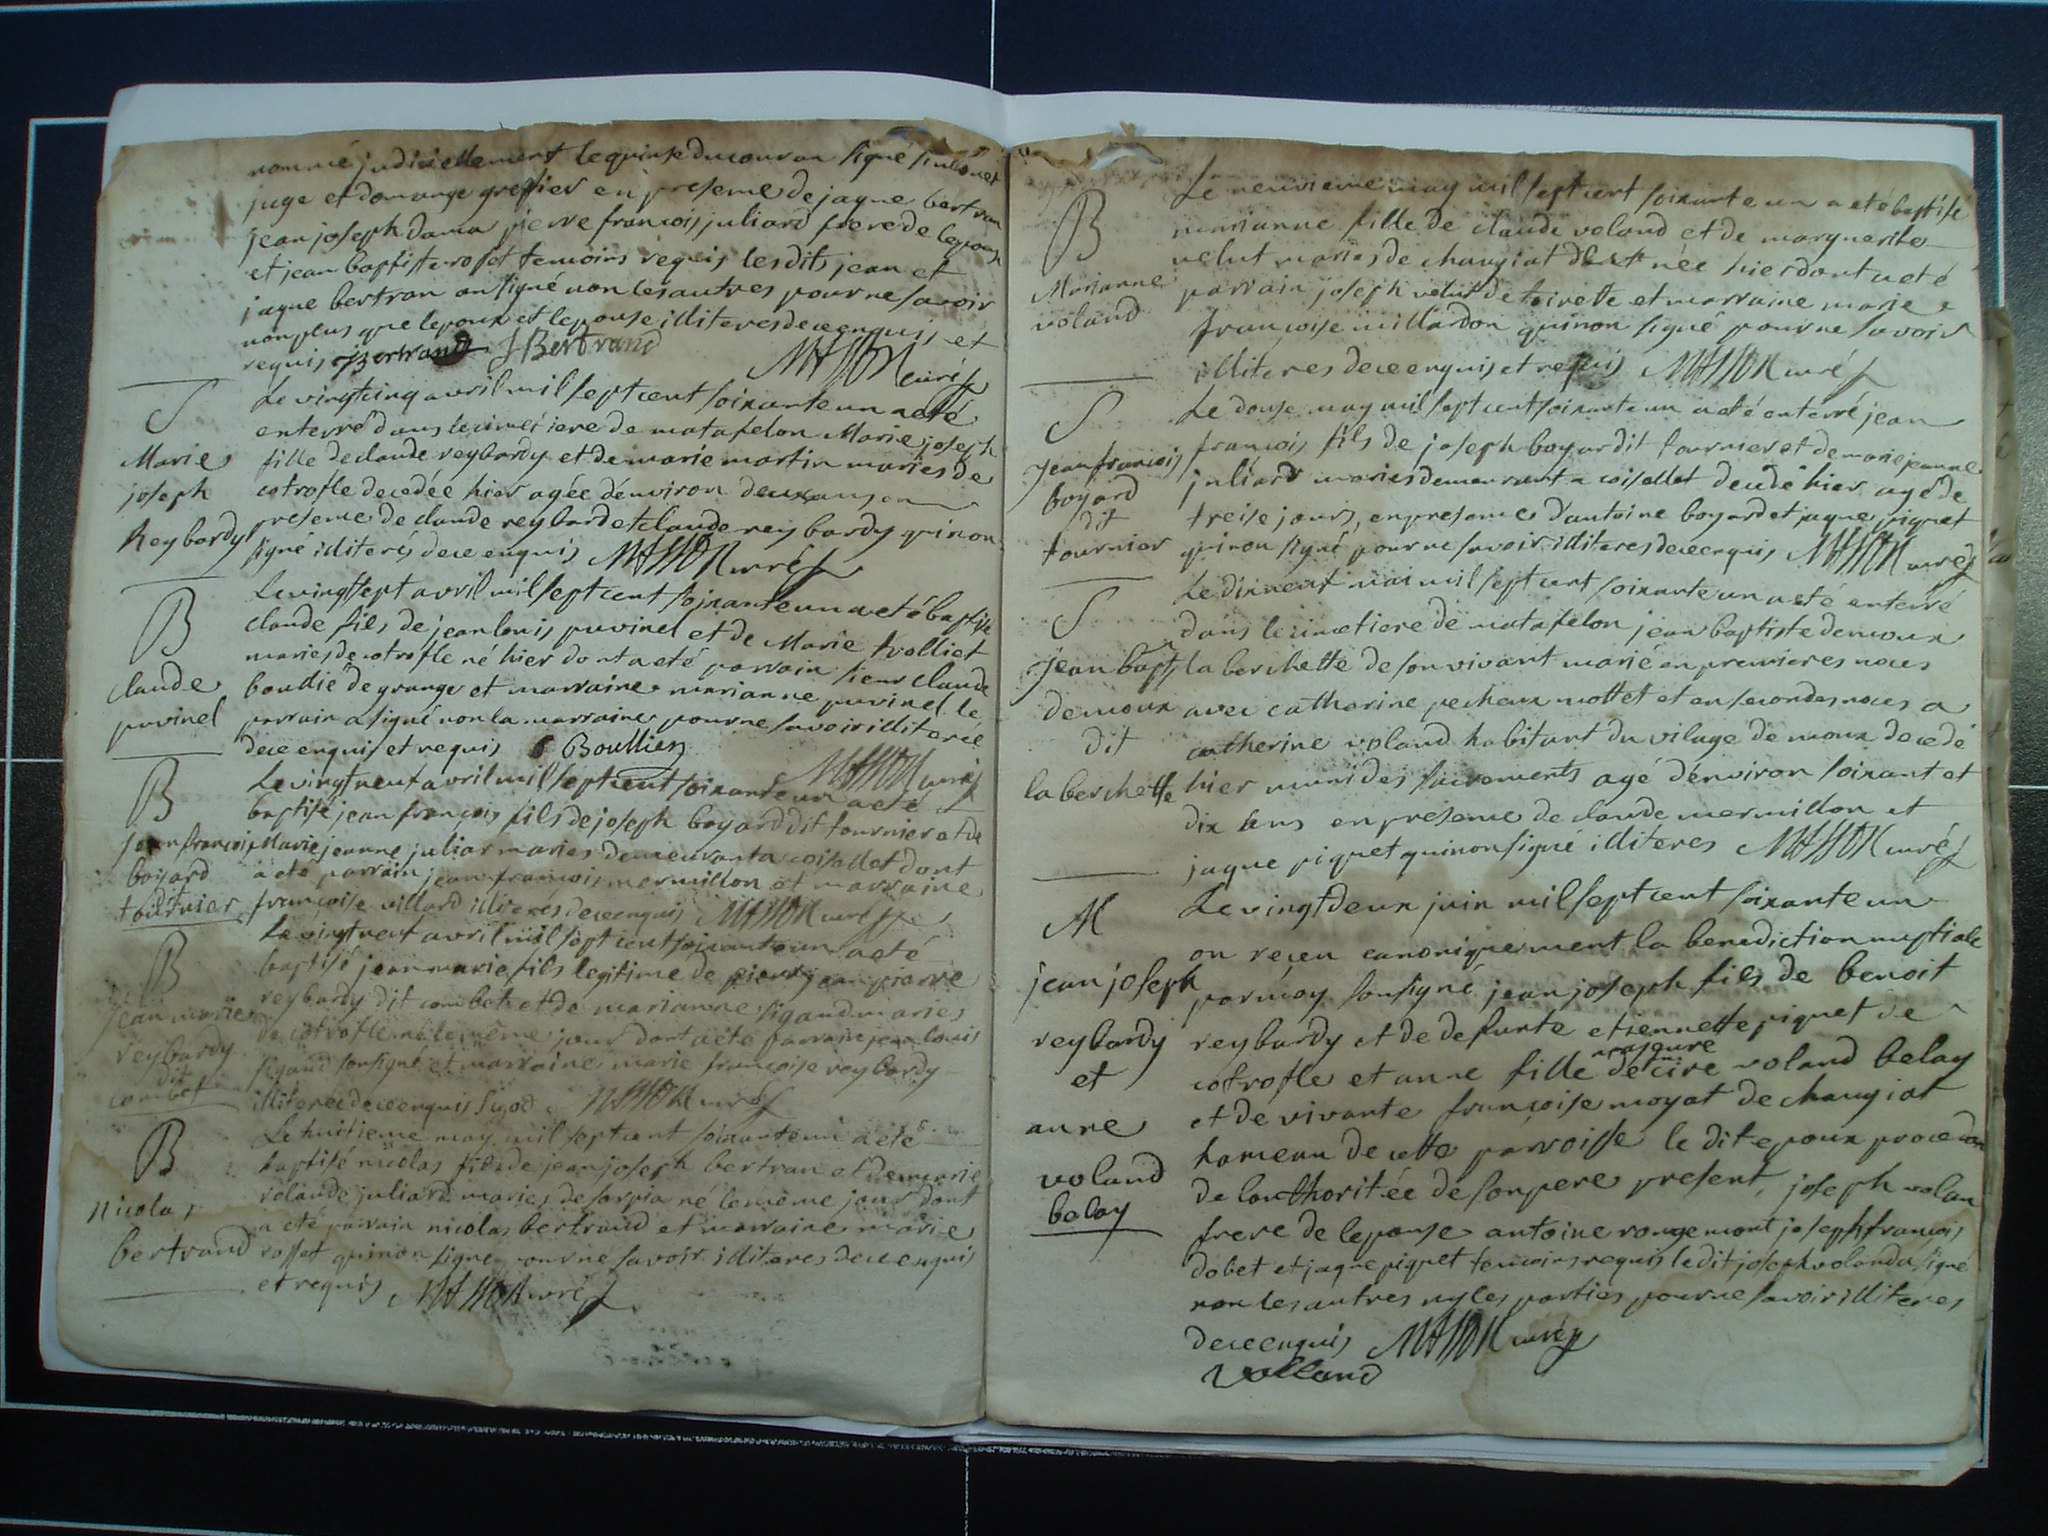 nommé judiciellement le quinze du couran signé
juge et domange grefier en presence de jaque bertran
jean joseph dama pierre francois juliard frere de lepouse
et jean baptiste rosset temoins requis lesdits jean et
jaque bertran on signé non les autres pour ne savoir
non plus que lepoux et lepouse illiteres de ce enquis et
requis jbertrand JBertrand MASSON curé
S
Marie
joseph
Reybardy
Le vingtcinq avril mil sept cent soixante un a eté
enterré dans le cimetiere de matafelon Marie joseph
fille de claude reybardy et de marie martin mariés de
cotrofle decedée hier agée d'environ deux ans en
presence de claude reybard et claude reybardy qui non
signé illiterés de ce enquis MASSON curé
B
claude
puvinel
Le vingtsept avril mil sept cent soixante un a eté baptisé
claude fils de jean louis puvinel et de Marie trolliet
mariés de cotrofle né hier dont a eté parrain sieur claude
boudié de grange et marraine marianne puvinel le
parrain a signé non la marraine pour ne savoir illiterée
de ce enquise et requis Boullier
MASSON curé
B
jean francois
boyard
dit
tournier
Le vingtneuf avril mil sept cent soixante un a eté
baptisé jean francois fils de joseph boyard dit tournier et de
Marie jeanne juliar mariés demeurant a coisellet dont
a eté parrain jean francois mermillon et marraine
francoise villard illiteres de ce enquis MASSON curé
B
jean marie
reybardy
dit
combet
Le vingt neuf avril mil sept cent soixante un a eté
baptisé jean marie fils legitime de jean pierre
reybardy dit combet et de marianne sigaud mariés
de cotrofle né le même jour dont a eté parrain jean louis
sigaud soussigné et marraine marie francoise reybardy
illiterée de ce enquis Sigod MASSON curé
B
Nicolas
bertrand
Le huitieme may mil sept cent soixante un a eté
baptisé nicolas fils de jean joseph bertran et de marie
rolande juliard mariés de sorpia né le même jour dont
a eté parrain nicolas bertrand et marraine marie
rosset qui non signé pour ne savoir illiteres de ce enquis
et requis MASSON curé
B
Marianne
voland
Le neuvieme may mil sept cent soixante un a eté baptisé
marianne fille de claude voland et de marguerite
velut mariés de changiat née hier dont a eté
parrain joseph velut de toirette et marraine marie
francoise millardon qui non signé pour ne savoir
illiteres de ce enquis et requis MASSON curé
S
jean francois
boyard
dit
tournier
Le douze may mil sept cent soixante un a eté enterré jean
francois fils de joseph boyard dit tournier et de marie jeanne
juliard mariés demeurant a coisellet decedé hier agé de
treise jours, en presence d'antoine boyard et jaque piquet
qui non signé pour ne savoir illiteres de ce enquis MASSON curé
S
jean bapt
demoux
dit
la berchette
Le dixneuf mai mil sept cent soixante un a eté enterré
dans le cimetiere de matafelon jean baptiste demoux
la berchette de son vivant marié en premieres noces
avec catherine pecheux mottet et en secondes noces a
catherine voland habitant du vilage de moux decedé
hier muni des sacrements agé d'environ soixant et
dix ans en presence de claude mermillon et
jaque piquet qui non signé illiteres MASSON curé
M
jean joseph
reybardy
et
anne
voland
belay
Le vingtdeux juin mil sept cent soixante un
on receu canoniquement la benediction nuptiale
par moy soussigné jean joseph fils de benoit
reybardy et de defunte etiennette piquet de
cotrofle et anne fille majeure de voland belay
et de vivante francoise moyat de changiat
hameau de cette parroisse le dit epoux procedan
de l'authoritée de son pere present, joseph volan
frere de lepouse antoine rougemont joseph francois
dobet et jaque piquet temoins requis le dit joseph voland a signé
non les autres ny les parties pour ne savoir illiteres
de ce enquis MASSON curé
Volland